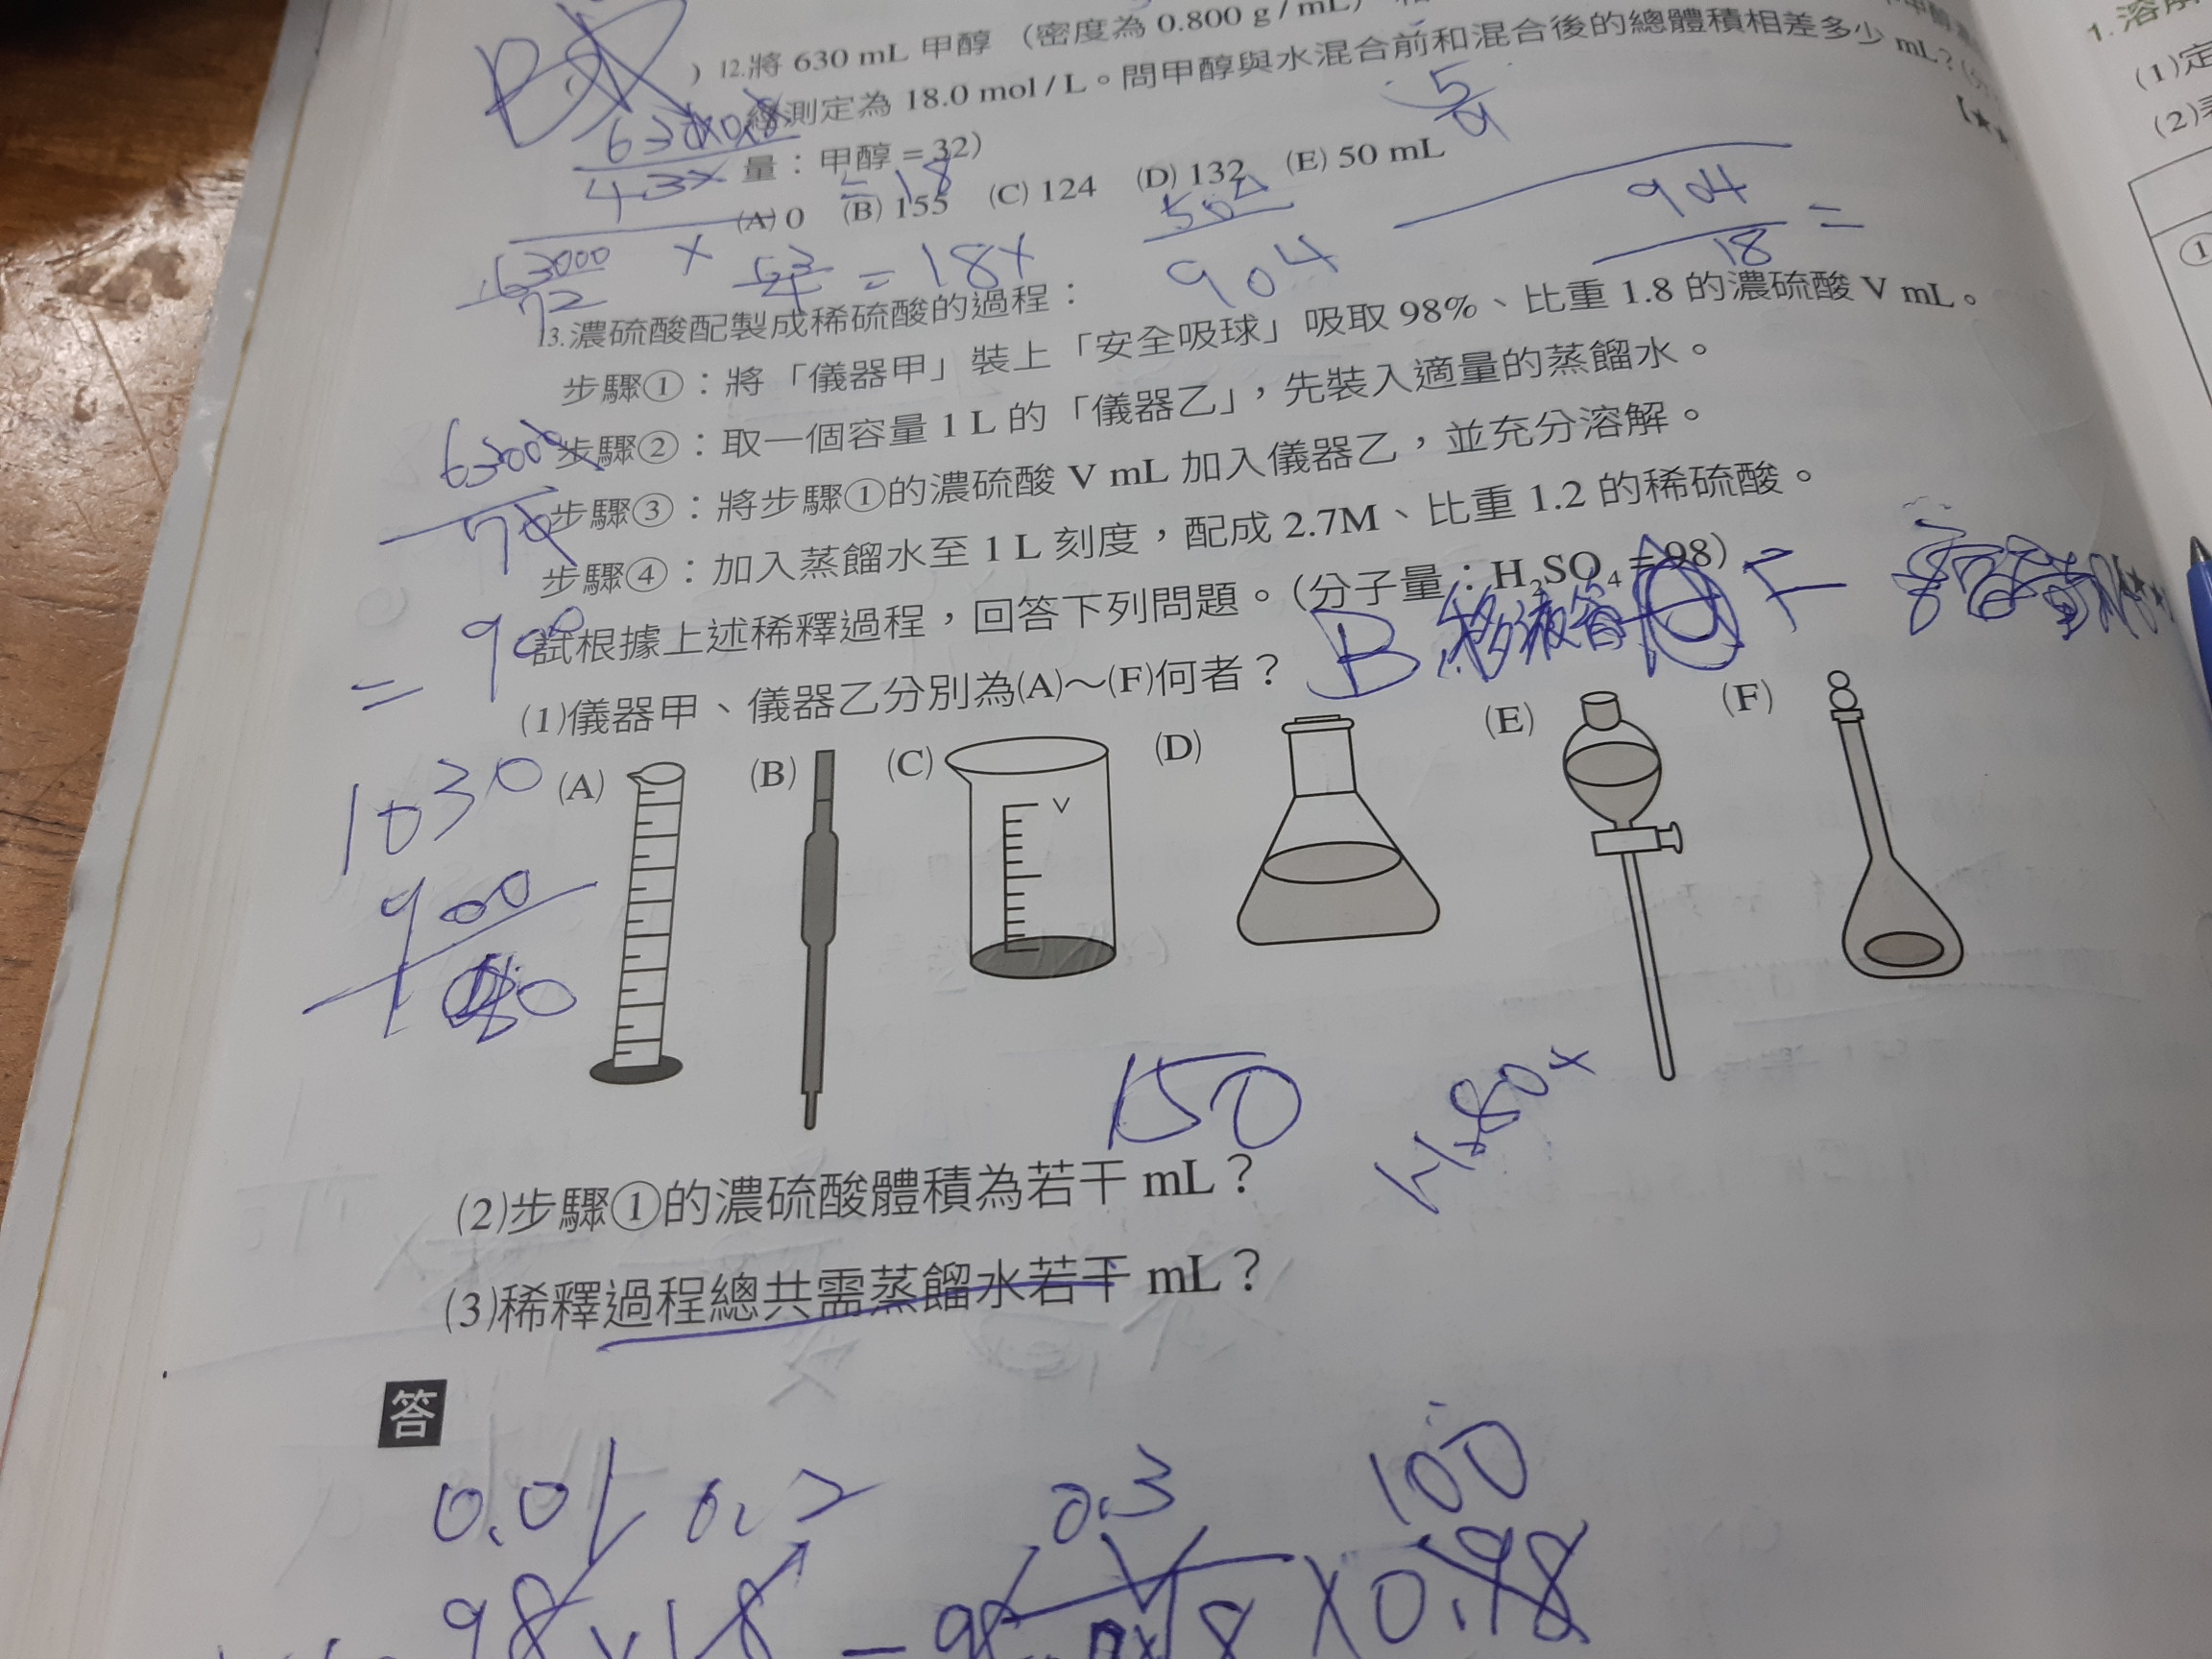 ) 12.將 630 mL 甲醇 (密度為 0.800 g / mL)
經測定為 18.0 mol / L。問甲醇與水混合前和混合後的總體積相差多少 mL?
量:甲醇 = 32)
(A) 0 (B) 155 (C) 124 (D) 132 (E) 50 mL
630×0.8
43x
= 18
5
9
504
904
904
18
=
63000
72
x
63
4
= 18x
13.濃硫酸配製成稀硫酸的過程:
步驟①:將「儀器甲」裝上「安全吸球」吸取 98%、比重 1.8 的濃硫酸 V mL。
步驟②:取一個容量 1 L 的「儀器乙」,先裝入適量的蒸餾水。
步驟③:將步驟①的濃硫酸 V mL 加入儀器乙,並充分溶解。
步驟④:加入蒸餾水至 1 L 刻度,配成 2.7M、比重 1.2 的稀硫酸。
試根據上述稀釋過程,回答下列問題。(分子量:H₂SO₄ = 98)
(1)儀器甲、儀器乙分別為(A)～(F)何者?
B 移液管 F
= 900
1030
900
(A) (B) (C) (D) (E) (F)
V
150
(2)步驟①的濃硫酸體積為若干 mL?
(3)稀釋過程總共需蒸餾水若干 mL?
答
0.01 0.2 0.3 100
98 × 18
18 × 0.98
1.溶解
(1)定
(2)表
①